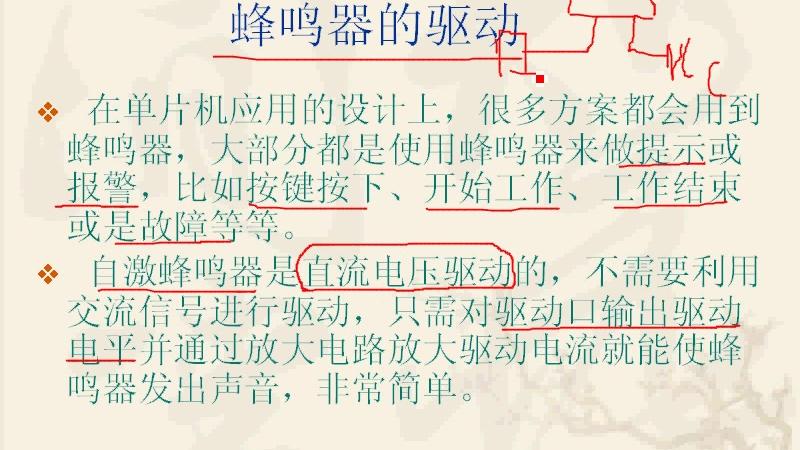 蜂鸣器的驱动
在单片机应用的设计上，很多方案都会用到
蜂鸣器，大部分都是使用蜂鸣器来做提示或
报警，比如按键按下、开始工作、工作结束
或是故障等等。
自激蜂鸣器是直流电压驱动的，不需要利用
交流信号进行驱动，只需对驱动口输出驱动
电平并通过放大电路放大驱动电流就能使蜂
鸣器发出声音，非常简单。